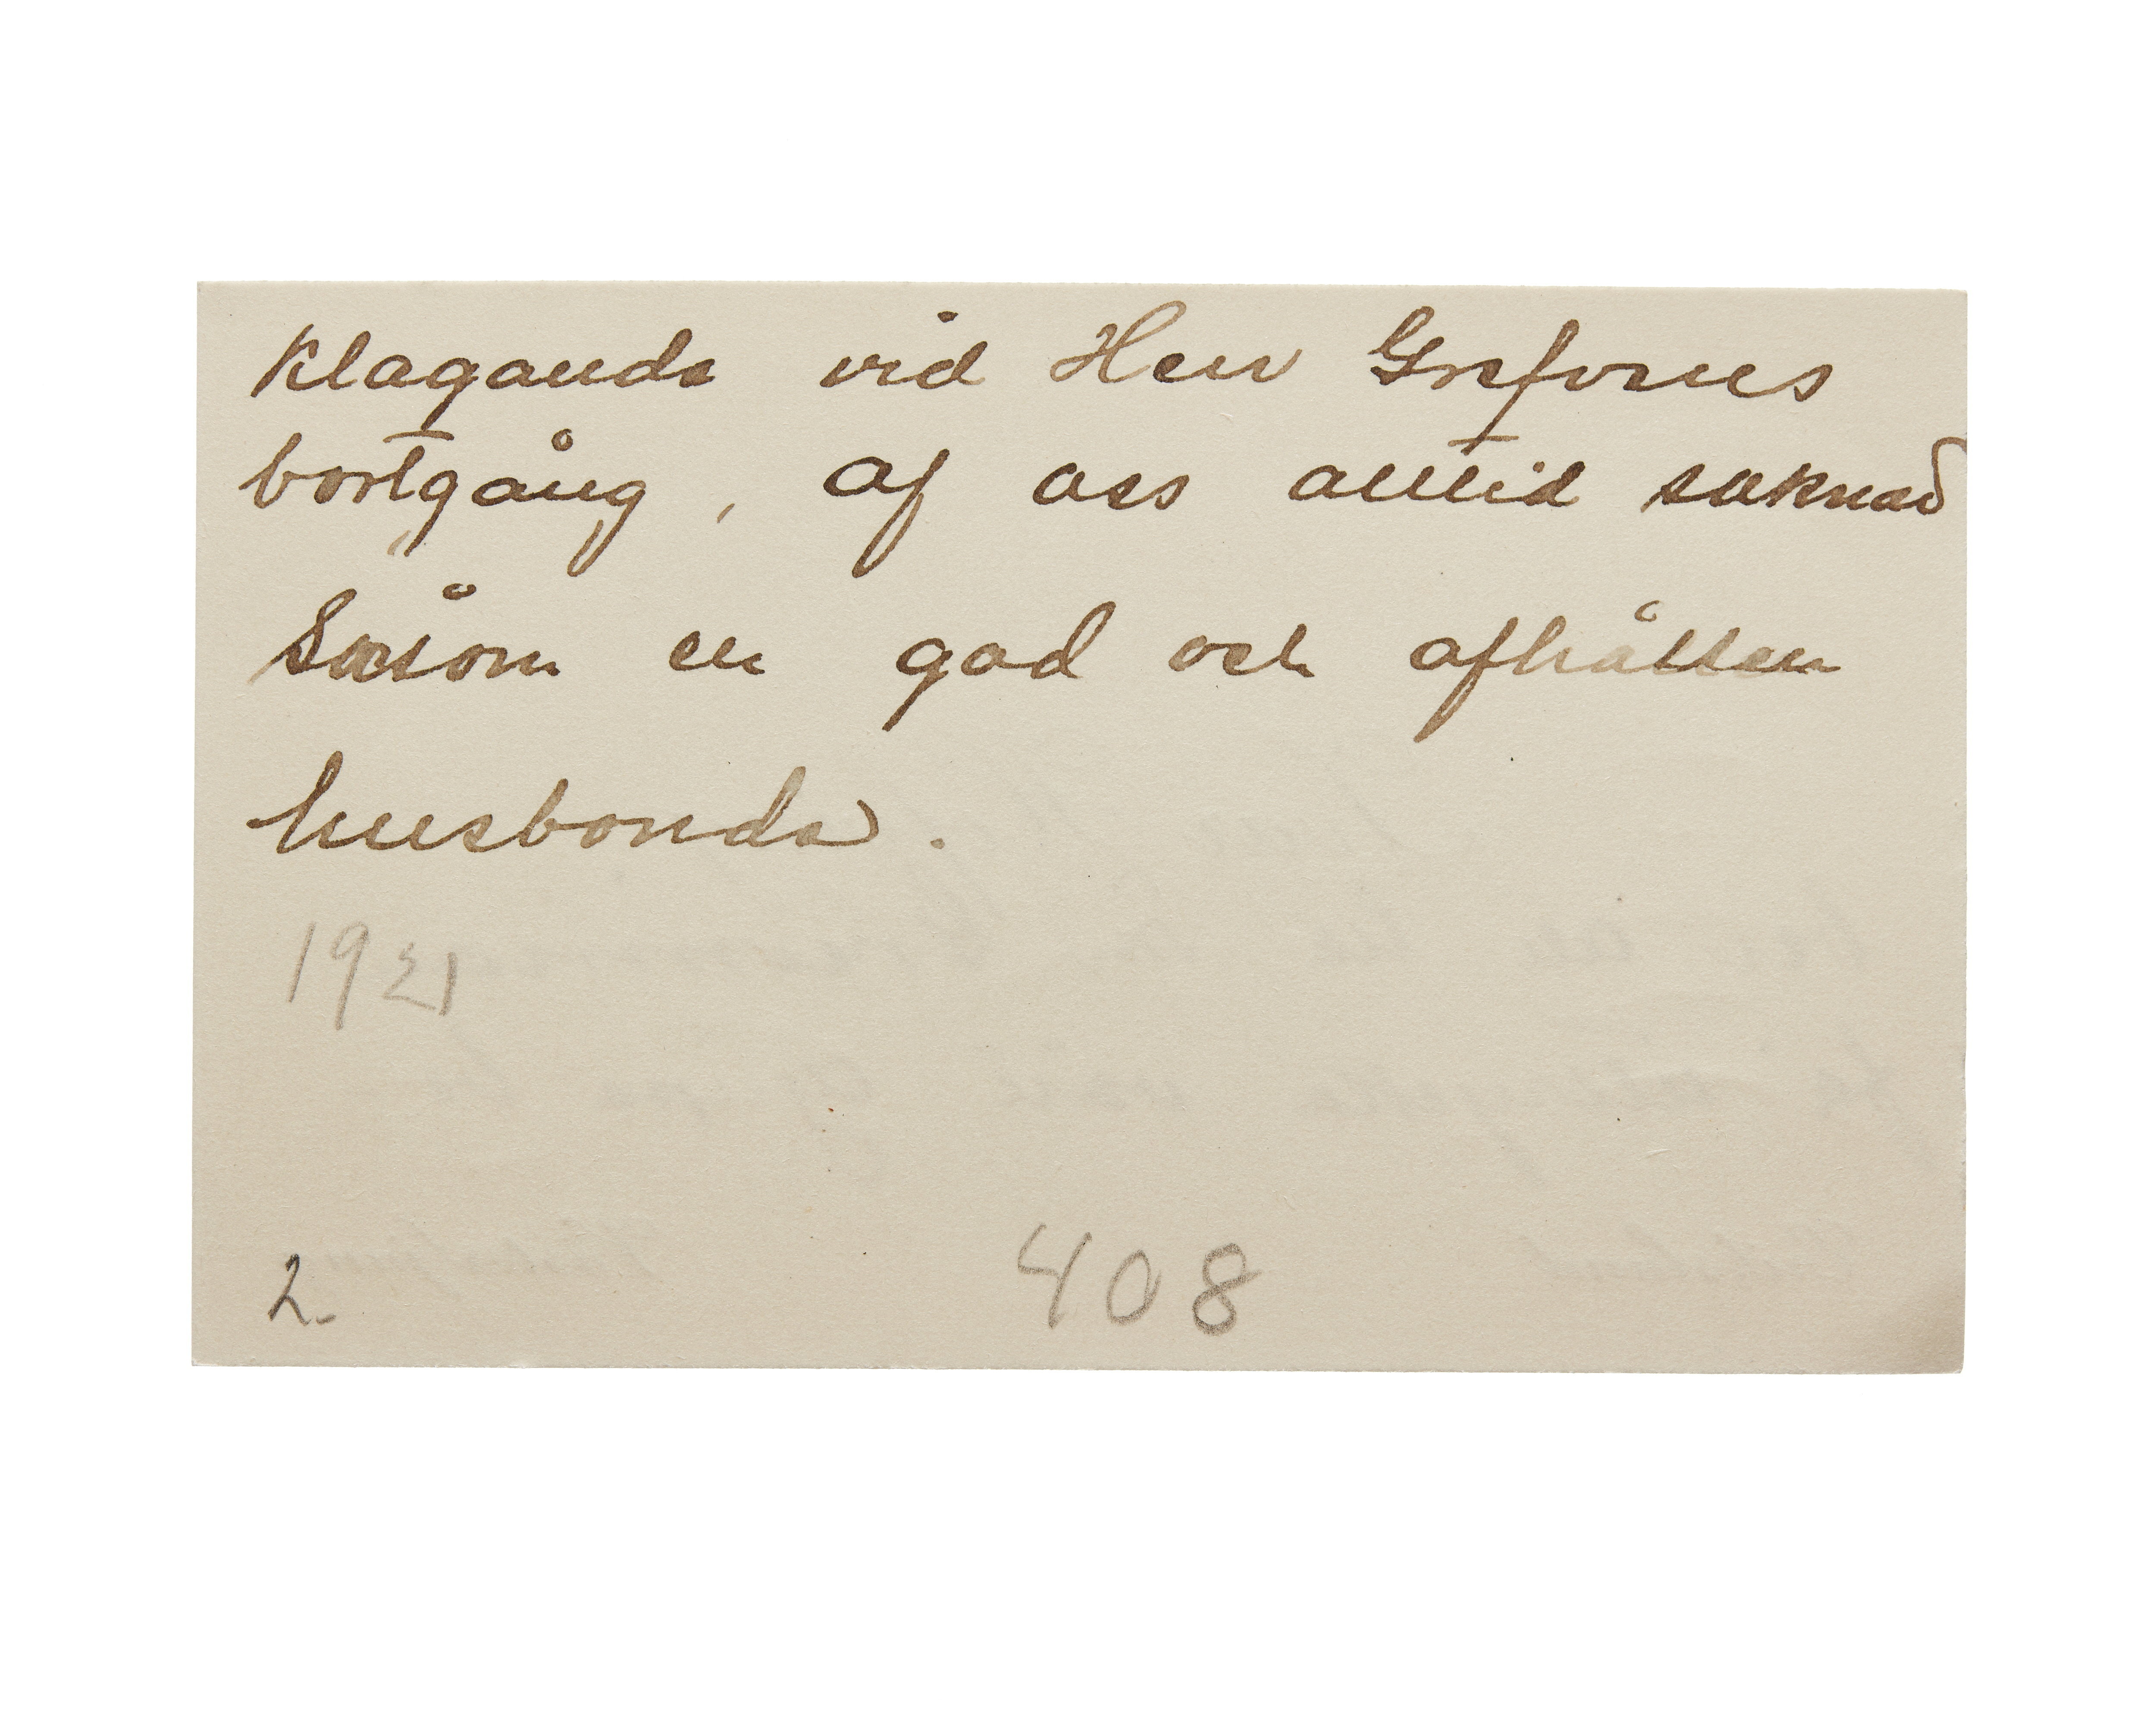 klagande vid Herr Grefvens
bortgång, af oss alltid saknad
såsom en god och afhållen
husbonde.
1921
2.
408